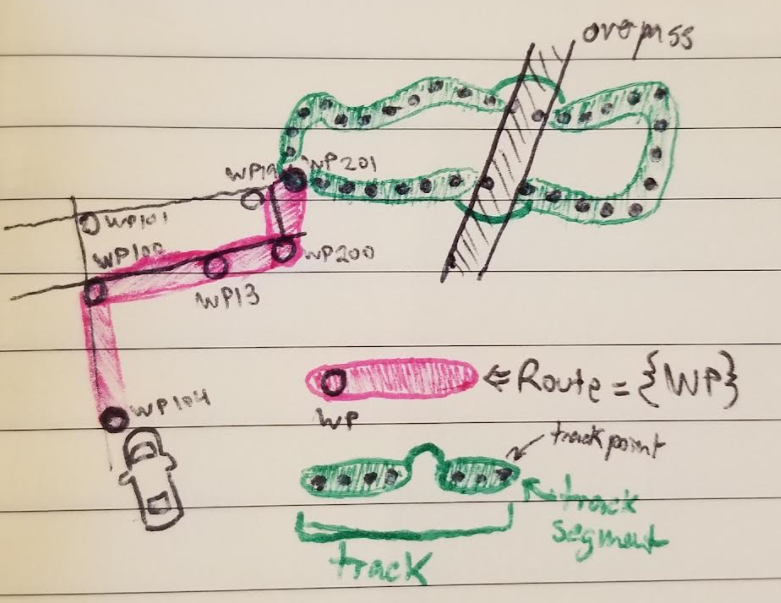 overpass
WP19 WP201
WP101
WP100
WP200
WP13
WP104
⇐ Route = {WP}
WP
trackpoint
track
segment
track